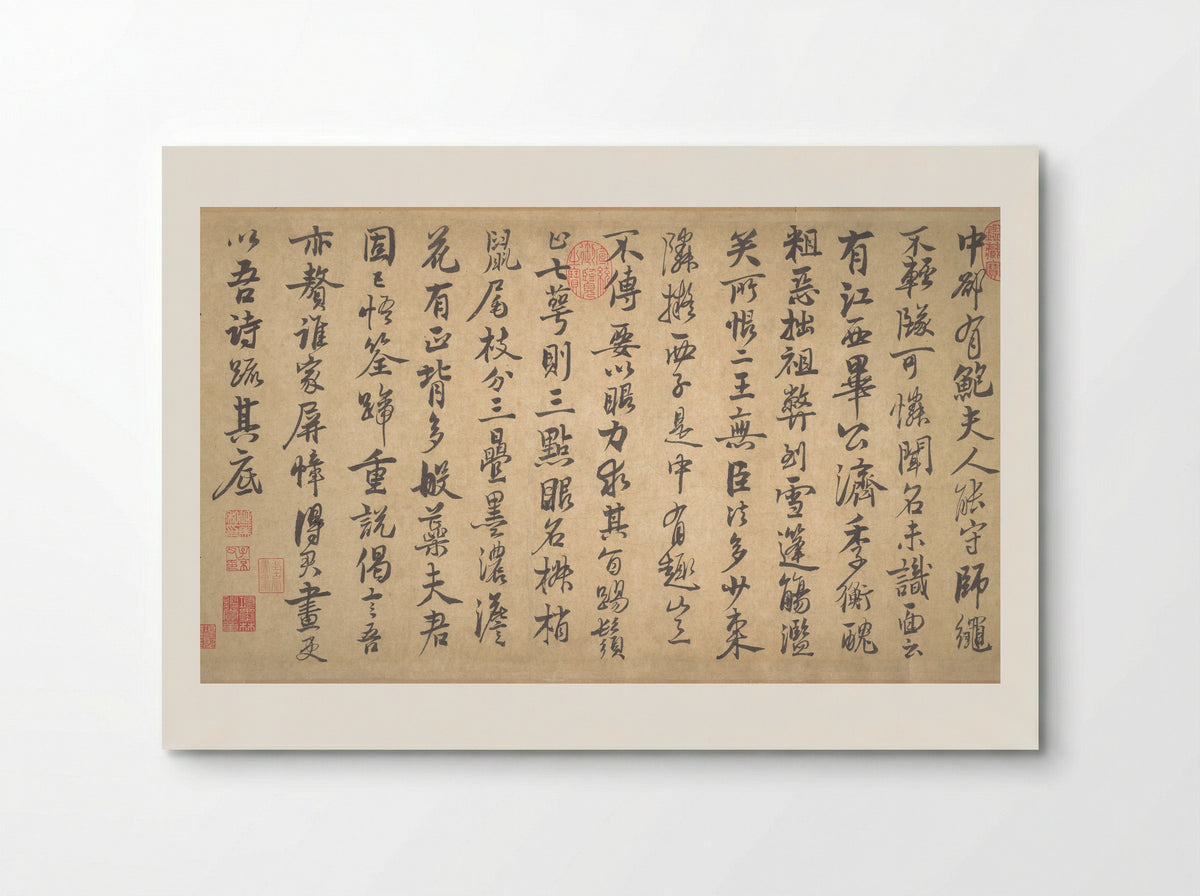 中卻有鮑夫人能守師繩
不輕墜可憐聞名未識面云
有江西畢公濟季衡醜
粗惡拙祖弊到雪蓬觴濫
笑所恨二王無臣法多少東
隣擬西子是中有趣豈
不傳要以眼力求其旨踢鬚
止七萼則三點眼名椒梢
鼠尾枝分三疊墨濃澹
花有正背多般蘂夫君
固已悟筌蹄重說偈言吾
亦贅誰家屏幛得君畫更
以吾詩疏其底